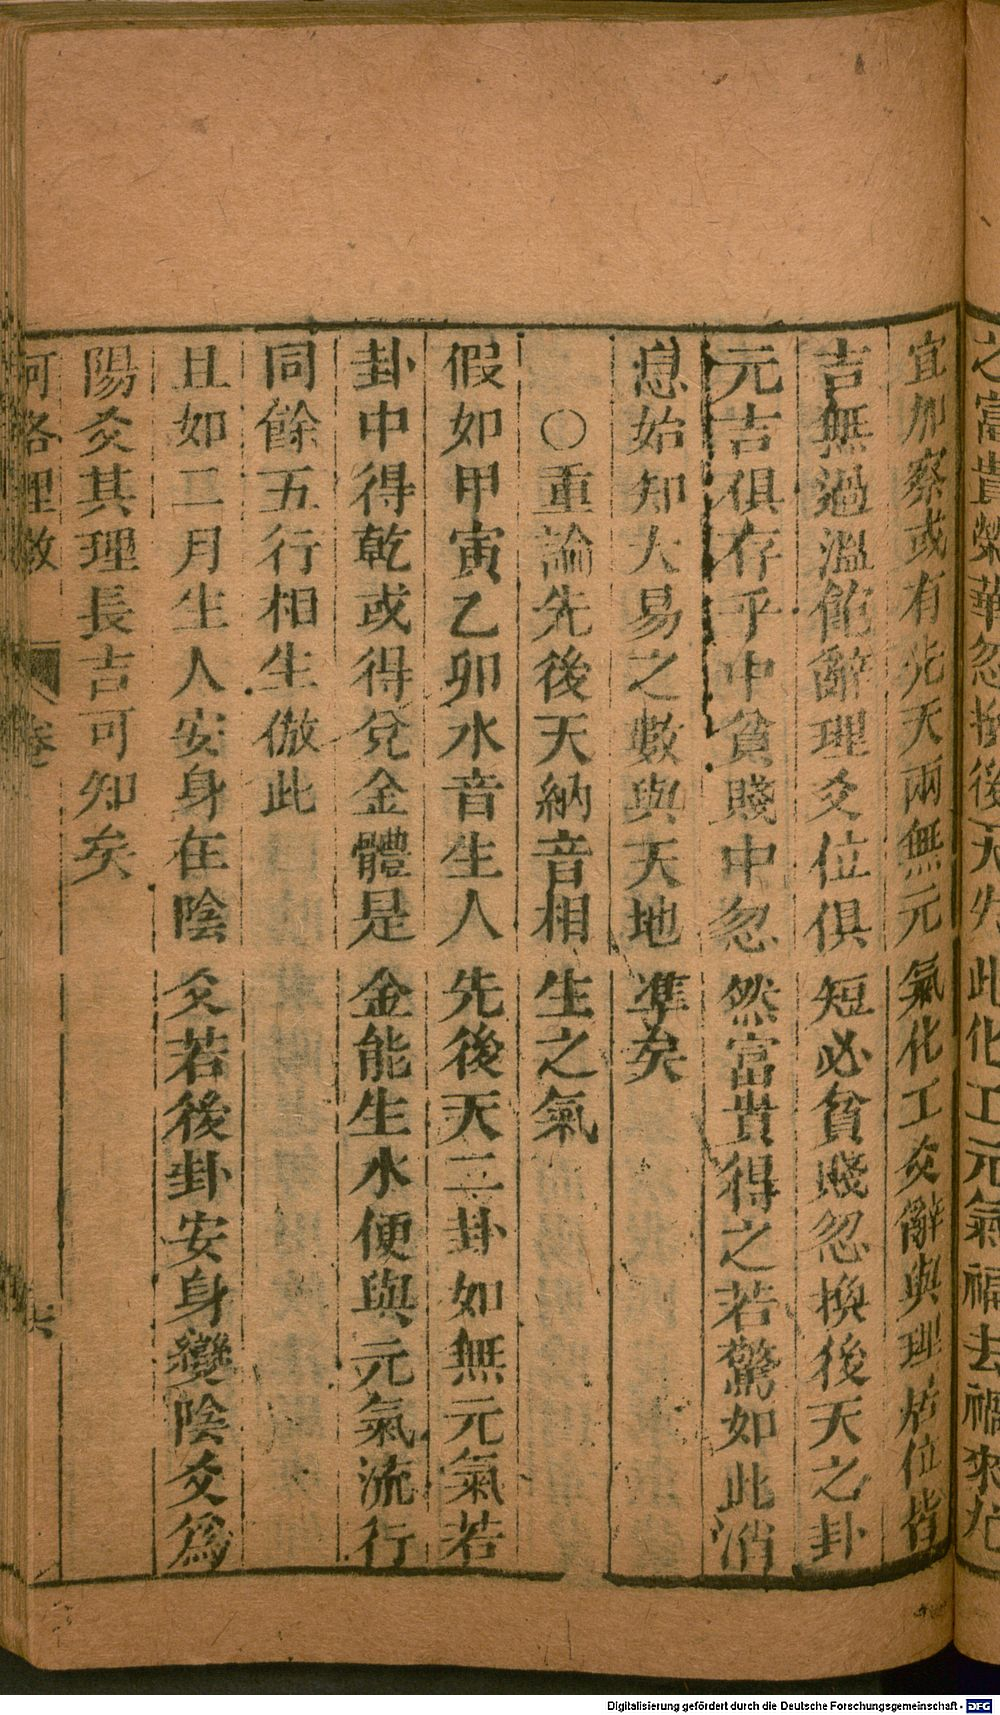 之富貴榮華忽換後天失此化工元氣福去禍來尤
宜加察或有先天兩無元氣化工爻辭與理居位皆
吉無過溫飽辭理爻位俱短必貧賤忽換後天之卦
元吉俱存乎中貧賤中忽然富貴得之若驚如此消
息始知大易之數與天地準矣
○重論先後天納音相生之氣
假如甲寅乙卯水音生人先後天二卦如無元氣若
卦中得乾或得兌金體是金能生水便與元氣流行
同餘五行相生倣此
且如二月生人安身在陰爻若後卦安身變陰爻爲
陽爻其理長吉可知矣
河洛理數 卷 六
Digitalisierung gefördert durch die Deutsche Forschungsgemeinschaft - DFG